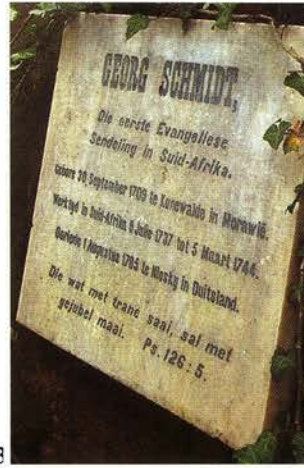 GEORG SCHMIDT,
Die eerste Evangeliese
Sendeling in Suid-Afrika.
Gebore 30 September 1709 te Kunewalde in Morawië.
Werktyd in Suid-Afrika 9 Julie 1737 tot 5 Maart 1744.
Oorlede 1 Augustus 1785 te Niesky in Duitsland.
Die wat met trane saai, sal met
gejubel maai. Ps. 126:5.